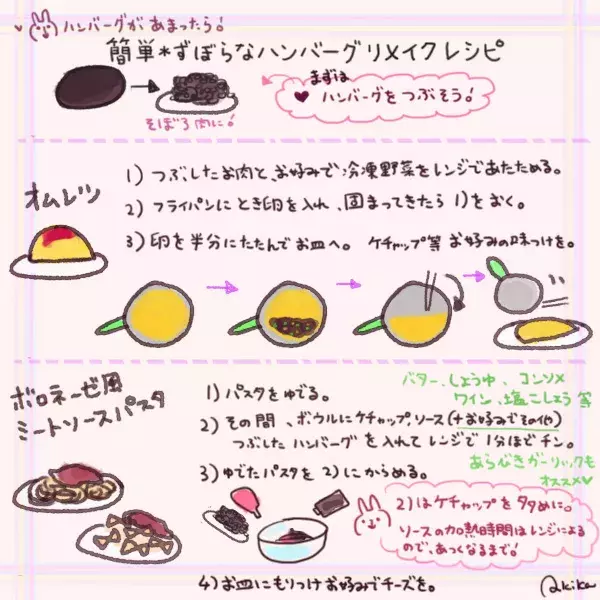 ハンバーグが あまったら!
簡単*ずぼらなハンバーグリメイクレシピ
まずは
ハンバーグをつぶそう!
そぼろ肉に!
オムレツ
1) つぶしたお肉と、お好みで冷凍野菜をレンジであたためる。
2) フライパンにとき卵を入れ、固まってきたら 1)をおく。
3) 卵を半分にたたんでお皿へ。 ケチャップ等 お好みの味つけを。
ボロネーゼ風
ミートソースパスタ
1) パスタをゆでる。
バター、しょうゆ、コンソメ
ワイン、塩こしょう 等
2) その間、ボウルにケチャップ、ソース(+お好みでその他)
つぶした ハンバーグ を入れて レンジで 1分ほどチン。
あらびきガーリックも
オススメ♥
3) ゆでたパスタを 2)にからめる。
2)はケチャップを多めに。
ソースの加熱時間はレンジによる
ので、あつくなるまで!
4) お皿にもりつけ お好みでチーズを。
Akika